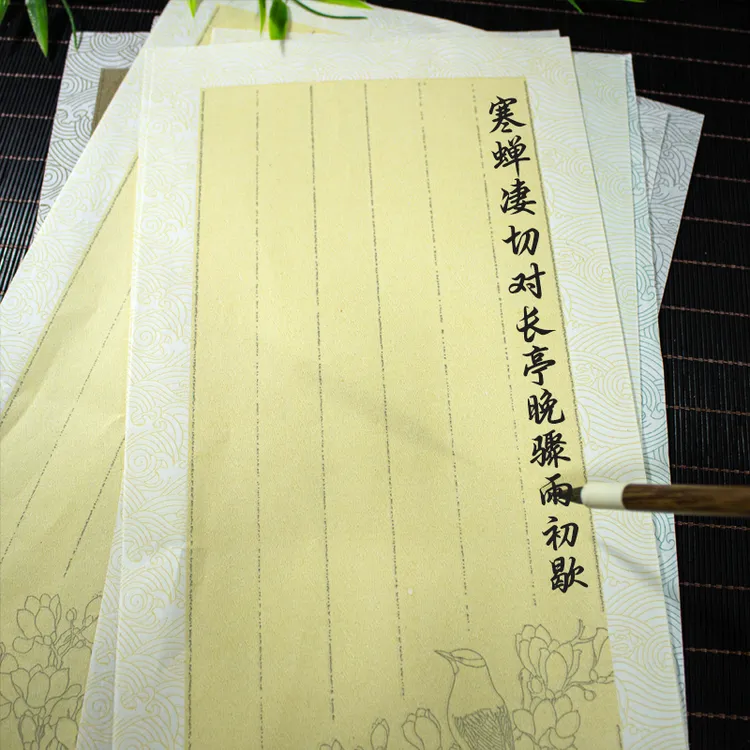 寒蝉凄切对长亭晚骤雨初歇